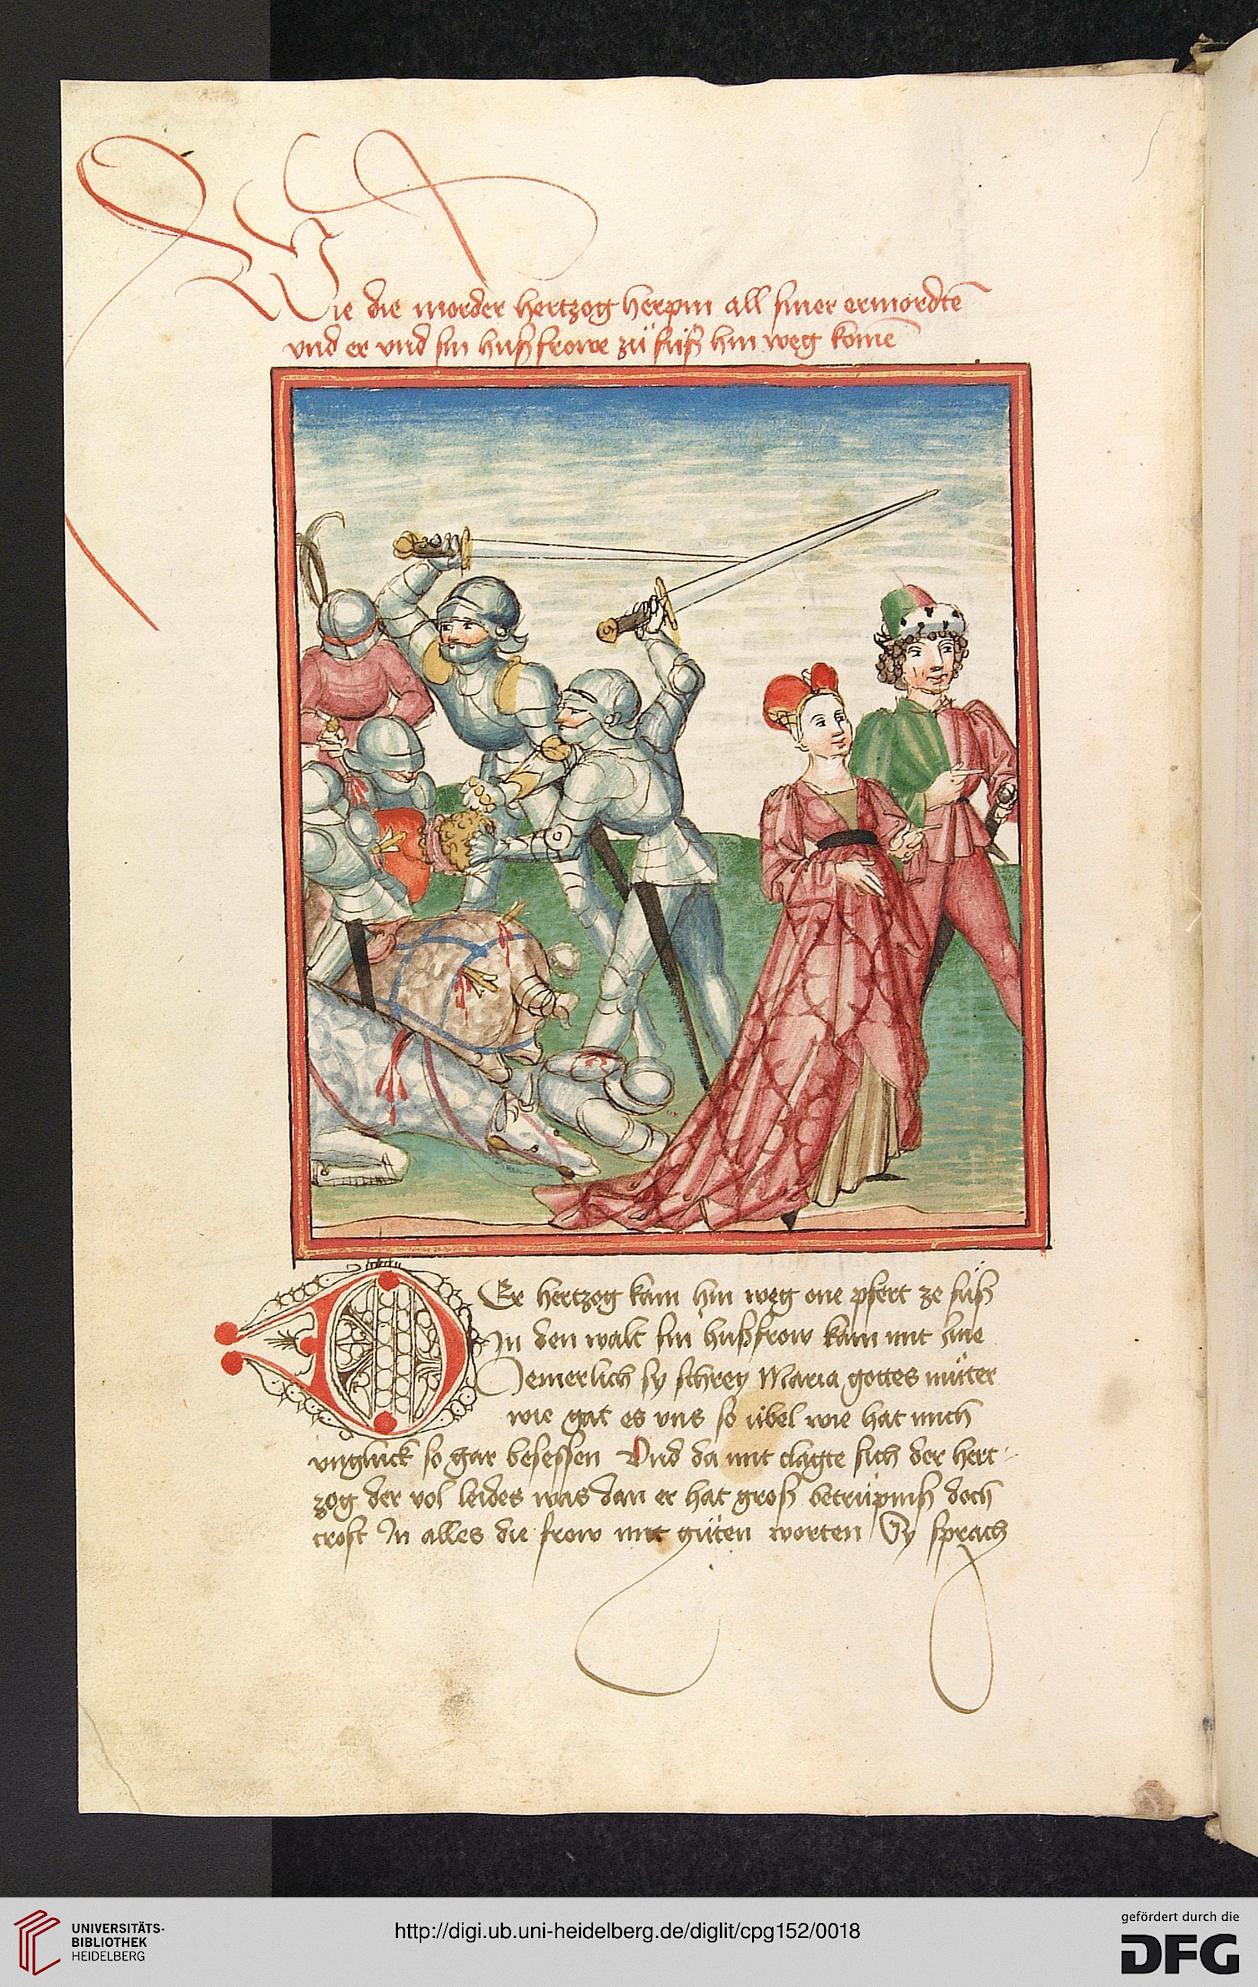 Wie die morder hertzog herpin all siner ermordtē
vnd er vnd sin huſzfrowe zů fůſz hin weg komē
DEr hertzog kam hin weg one pfert ze fůſz
In den walt sin huſzfrow kam mit ime
Iemerlich sy schrey Maria gottes můter
wie gat es vns so übel wie hat mich
vnglück so gar besessen Vnd da mit clagte sich der hert-
zog der vol leides was dan er hat groſz betrüpniſz doch
trost In alles die frow mit gůten worten Sy sprach
UNIVERSITÄTS-
BIBLIOTHEK
HEIDELBERG
http://digi.ub.uni-heidelberg.de/diglit/cpg152/0018
gefördert durch die
DFG